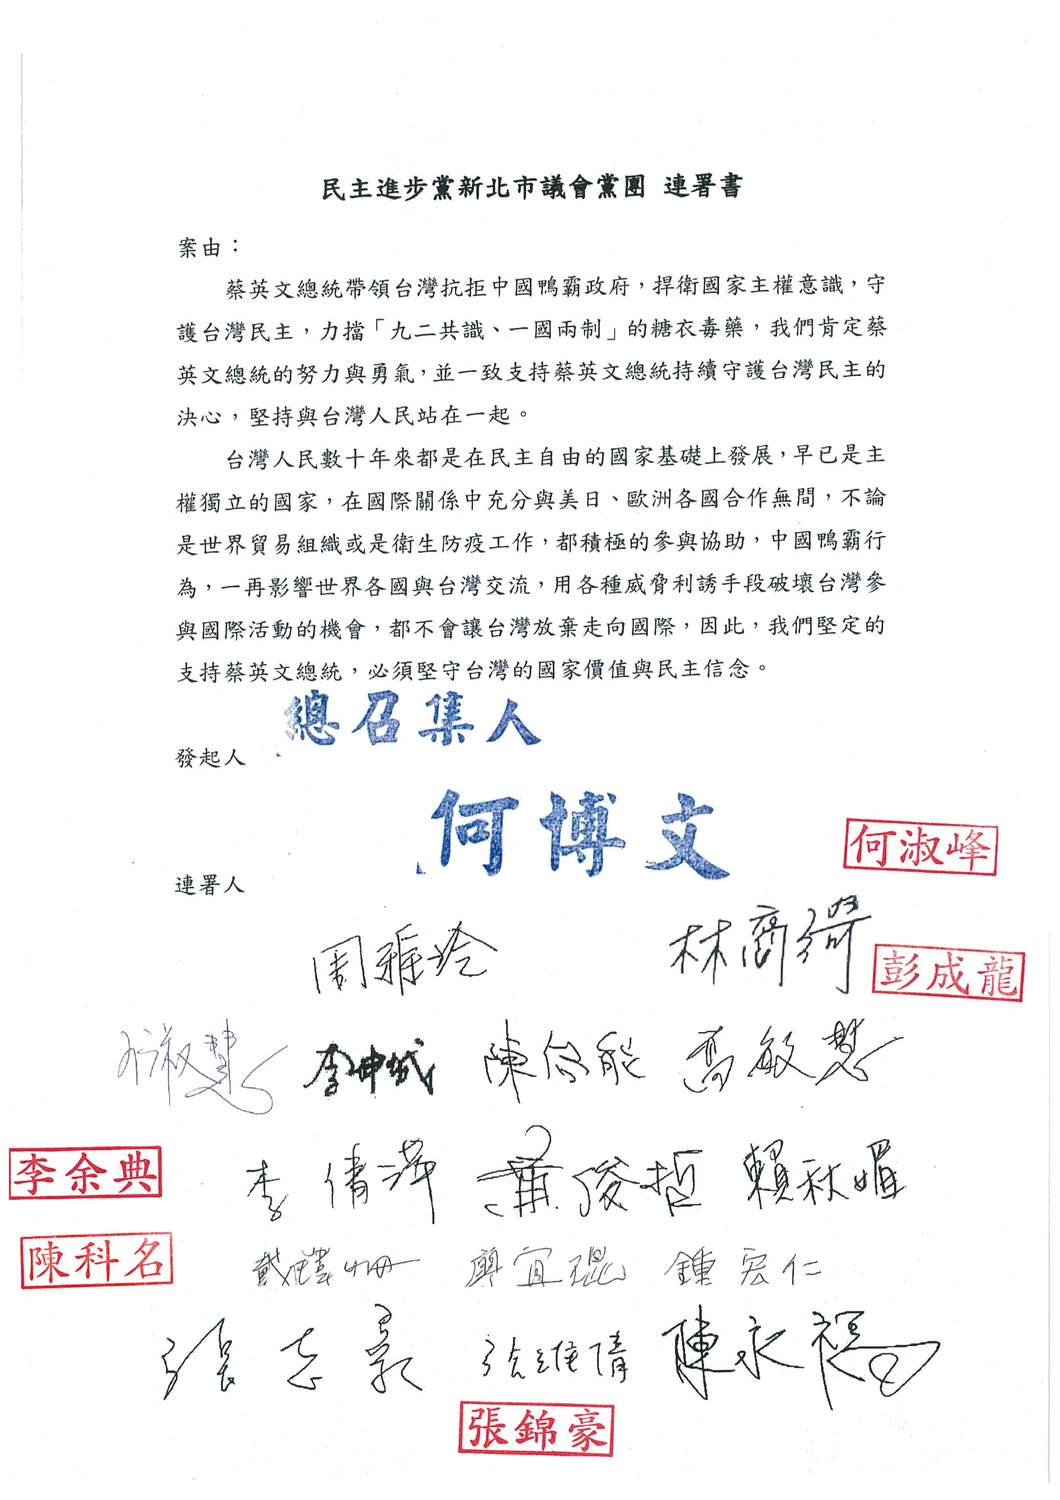 民主進步黨新北市議會黨團 連署書
案由：
蔡英文總統帶領台灣抗拒中國鴨霸政府，捍衛國家主權意識，守
護台灣民主，力擋「九二共識、一國兩制」的糖衣毒藥，我們肯定蔡
英文總統的努力與勇氣，並一致支持蔡英文總統持續守護台灣民主的
決心，堅持與台灣人民站在一起。
台灣人民數十年來都是在民主自由的國家基礎上發展，早已是主
權獨立的國家，在國際關係中充分與美日、歐洲各國合作無間，不論
是世界貿易組織或是衛生防疫工作，都積極的參與協助，中國鴨霸行
為，一再影響世界各國與台灣交流，用各種威脅利誘手段破壞台灣參
與國際活動的機會，都不會讓台灣放棄走向國際，因此，我們堅定的
支持蔡英文總統，必須堅守台灣的國家價值與民主信念。
總召集人
發起人
何博文
何淑峰
連署人
周雅玲 林裔綺
彭成龍
李坤城 陳啟能 高敏慧
李余典
李倩萍 賴秋媚
陳科名
戴瑋姍 廖宜琨 鍾宏仁
張志豪 陳永福
張錦豪